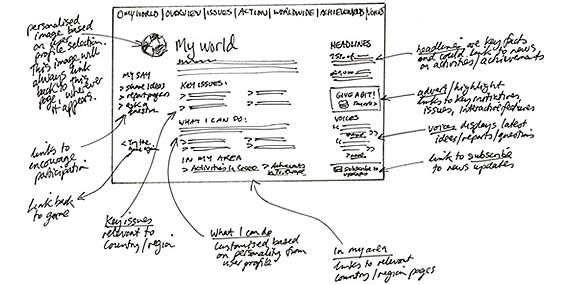 MY WORLD | OVERVIEW | ISSUES | ACTION | WORLDWIDE | ACHIEVEMENTS |
personalised
image based
on user
profile selection.
This image will
always link
back to this
page, wherever
it appears.
My world
MY SAY
> share ideas
> report pages
> ask a
question
< Try the
KEY ISSUES:
WHAT I CAN DO:
IN MY AREA
> Activities in
> Achievements
in Europe
HEADLINES
GIVE A BIT!
VOICES
Subscribe to
updates
headlines are key facts
and could link to news
on activities/achievements
advert/highlight
links to key motives,
issues, interactive features
voices displays latest
ideas/reports/questions
link to subscribe
to news updates
links to
encourage
participation
Link back
to game
Key issues
relevant to
country/region
What I can do
customised based
on personality from
user profile
In my area
links to relevant
country/region pages